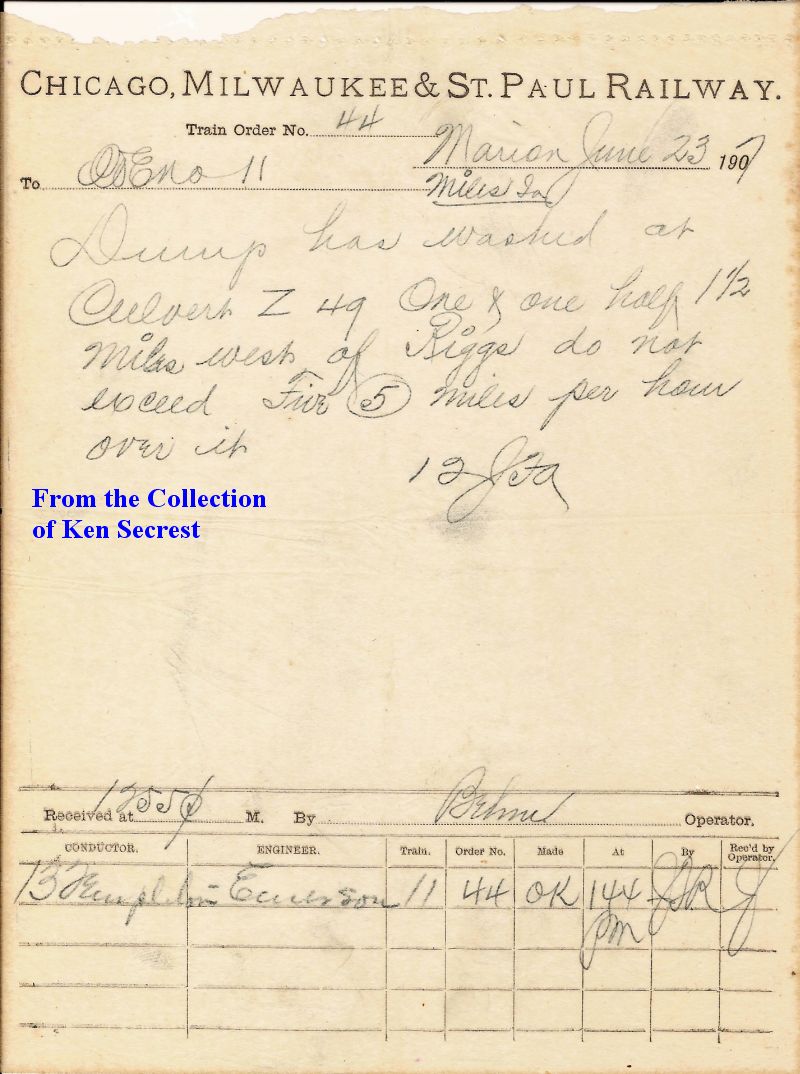 CHICAGO, MILWAUKEE & ST. PAUL RAILWAY.
Train Order No. 44
Marion June 23 1907
To C&E No 11
Miles Ia
Dump has washed at
Culvert Z 49 One & one half 1 1/2
Miles west of Riggs do not
exceed Five 5 miles per hour
over it
12
From the Collection
of Ken Secrest
Received at 1255 P M. By Operator.
CONDUCTOR. ENGINEER. Train. Order No. Made At By Rec'd by Operator.
Templeton Emerson 11 44 OK 144 PM